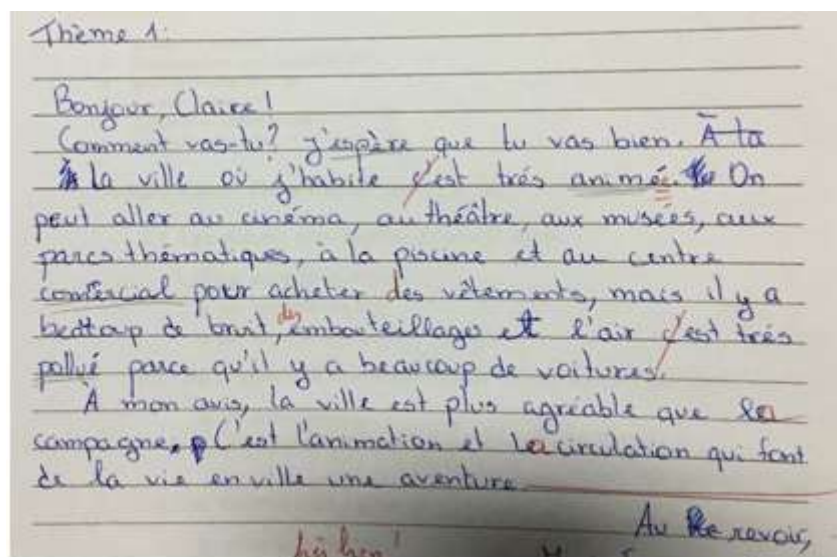 Thème 1:
Bonjour, Claire!
Comment vas-tu? J'espère que tu vas bien. À ta
La ville où j'habite c'est trés animée. On
peut aller au cinéma, au théâtre, aux musées, aux
parcs thématiques, à la piscine et au centre
comercial pour acheter des vêtements, mais il y a
beattoup de bruit, des embouteillages et l'air c'est trés
pollué parce qu'il y a beaucoup de voitures.
À mon avis, la ville est plus agréable que la
campagne. C'est l'animation et la circulation qui font
de la vie en ville une aventure
Au revoir,
très bien!